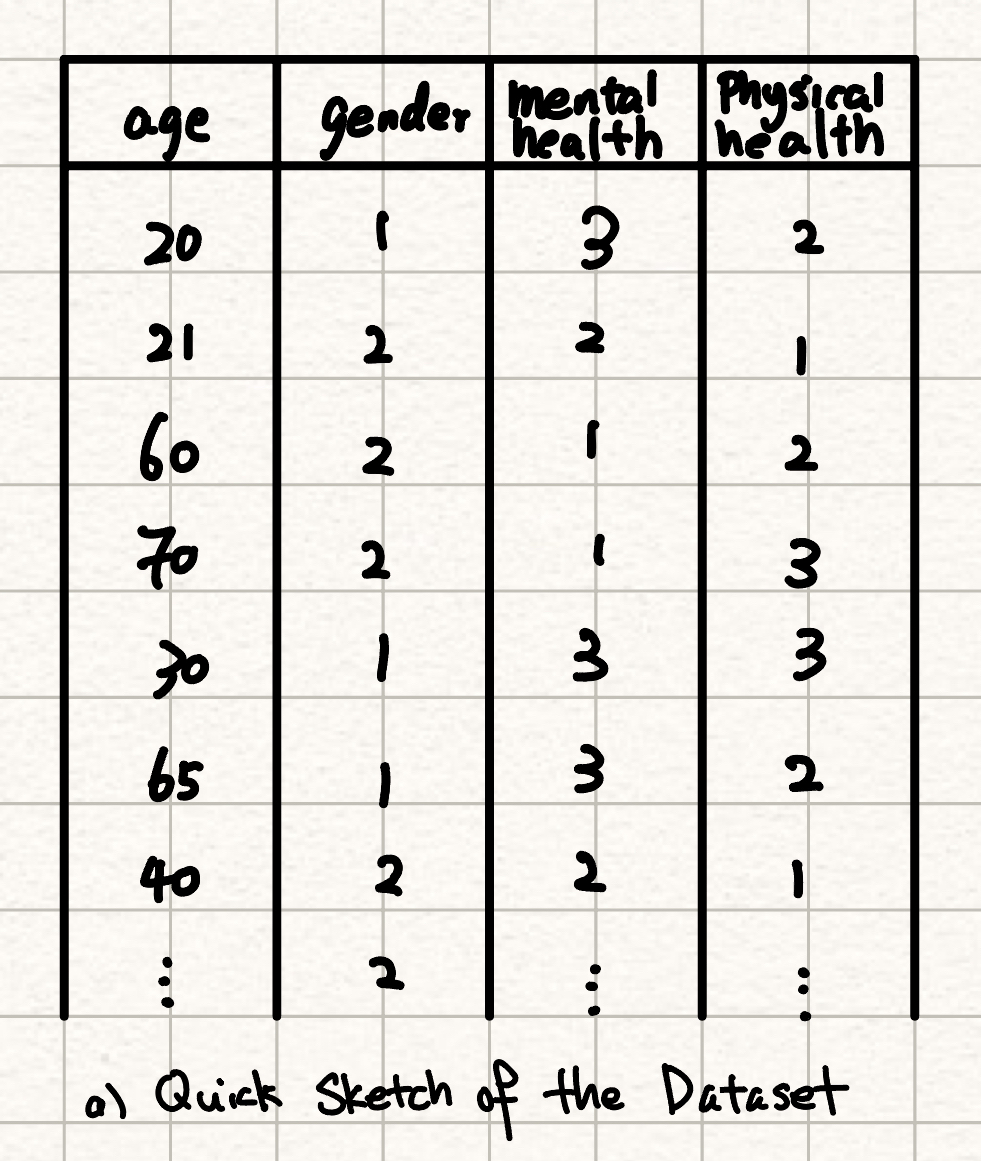 age gender mental health Physical health
20 1 3 2
21 2 2 1
60 2 1 2
70 2 1 3
30 1 3 3
65 1 3 2
40 2 2 1
⋮ 2 ⋮ ⋮
a) Quick Sketch of the Dataset